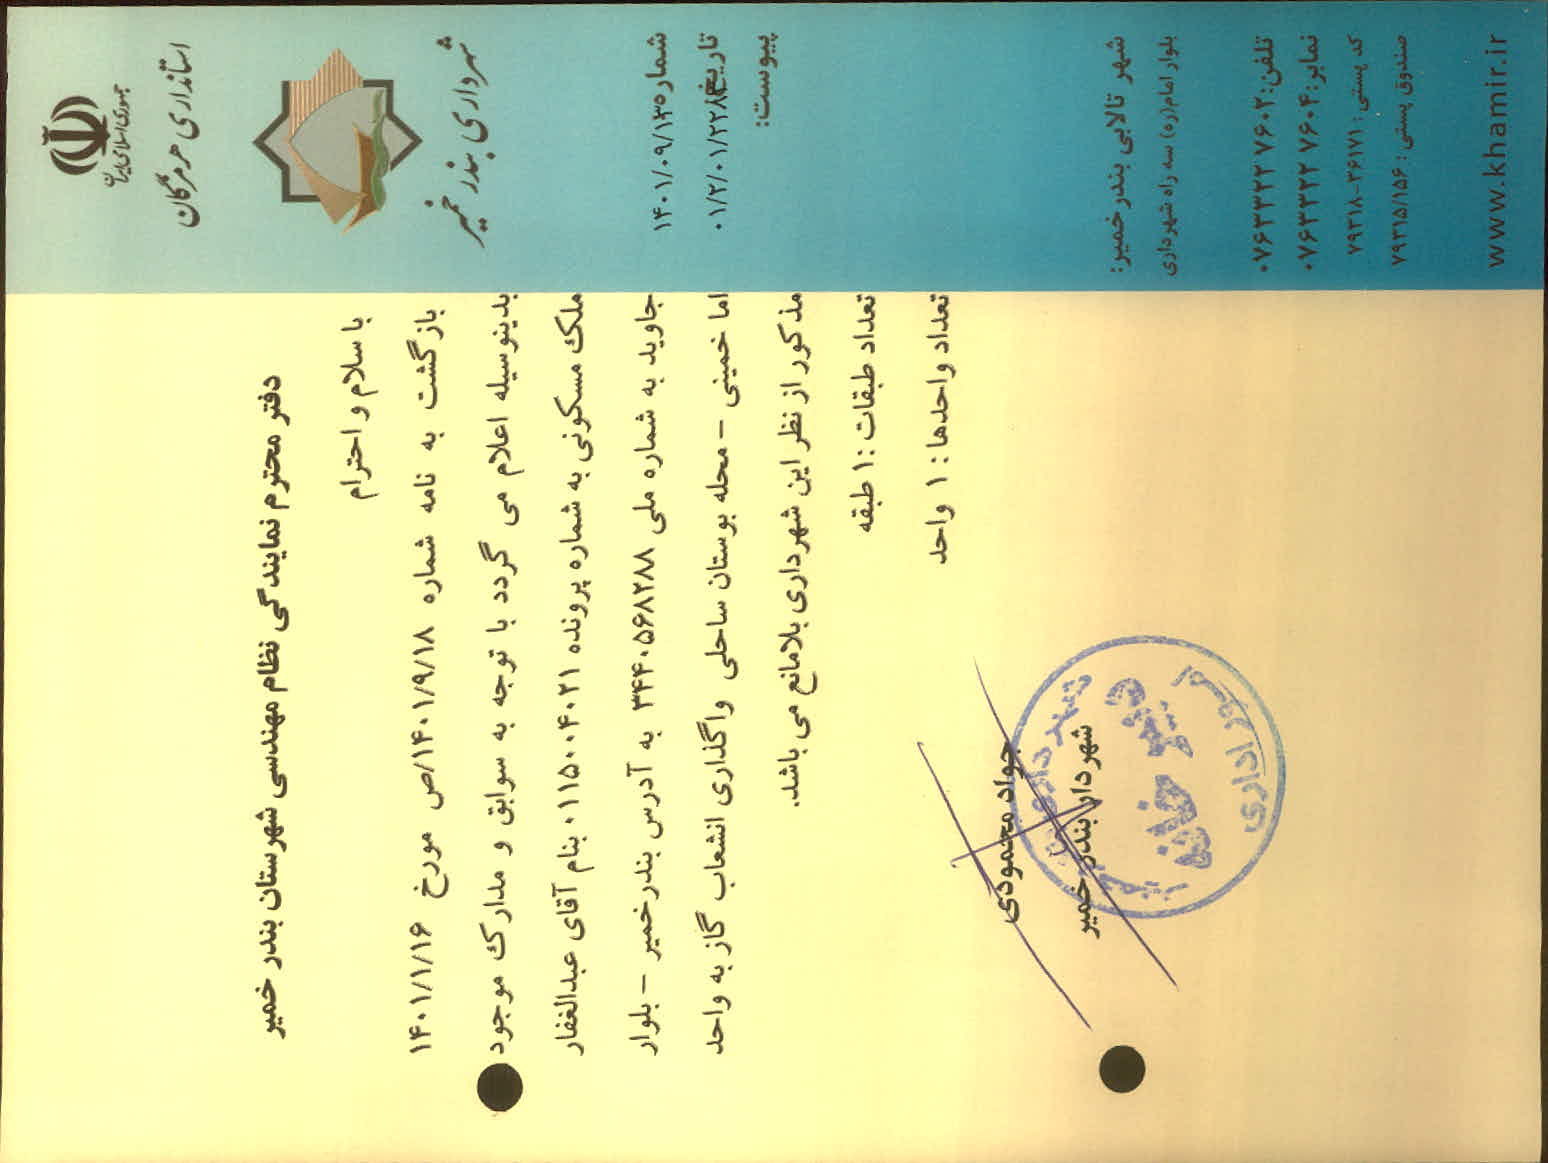 جمهوری اسلامی ایران
استانداری هرمزگان
شهرداری بندر خمیر
شماره
۱۴۰۱/۰۹/۱۳۵
تاریخ
۰۱/۲/۰۱/۲۲۸۴
پیوست:
دفتر محترم نمایندگی نظام مهندسی شهرستان بندر خمیر
با سلام و احترام
بازگشت به نامه شماره ۱۴۰۱/۹/۱۸/ص مورخ ۱۴۰۱/۱/۱۶
بدینوسیله اعلام می گردد با توجه به سوابق و مدارک موجود
ملک مسکونی به شماره پرونده ۰۱۱۵۰۰۴۰۲۱ بنام آقای عبدالغفار
جاوید به شماره ملی ۳۴۴۰۵۶۸۲۸۸ به آدرس بندرخمیر – بلوار
اما خمینی – محله بوستان ساحلی واگذاری انشعاب گاز به واحد
مذکور از نظر این شهرداری بلامانع می باشد.
تعداد طبقات :۱ طبقه
تعداد واحدها : ۱ واحد
جواد محمودی
شهردار بندر خمیر
شهرداری
دبیرخانه
امور اداری
شهر تالابی بندر خمیر:
بلوار امام(ره) سه راه شهرداری
تلفن: ۰۷۶۳۳۲۲۷۶۰۲
نمابر: ۰۷۶۳۳۲۲۷۶۰۴
کد پستی : ۳۶۱۷۱-۷۹۳۱۸
صندوق پستی : ۷۹۳۱۵/۱۵۶
www.khamir.ir